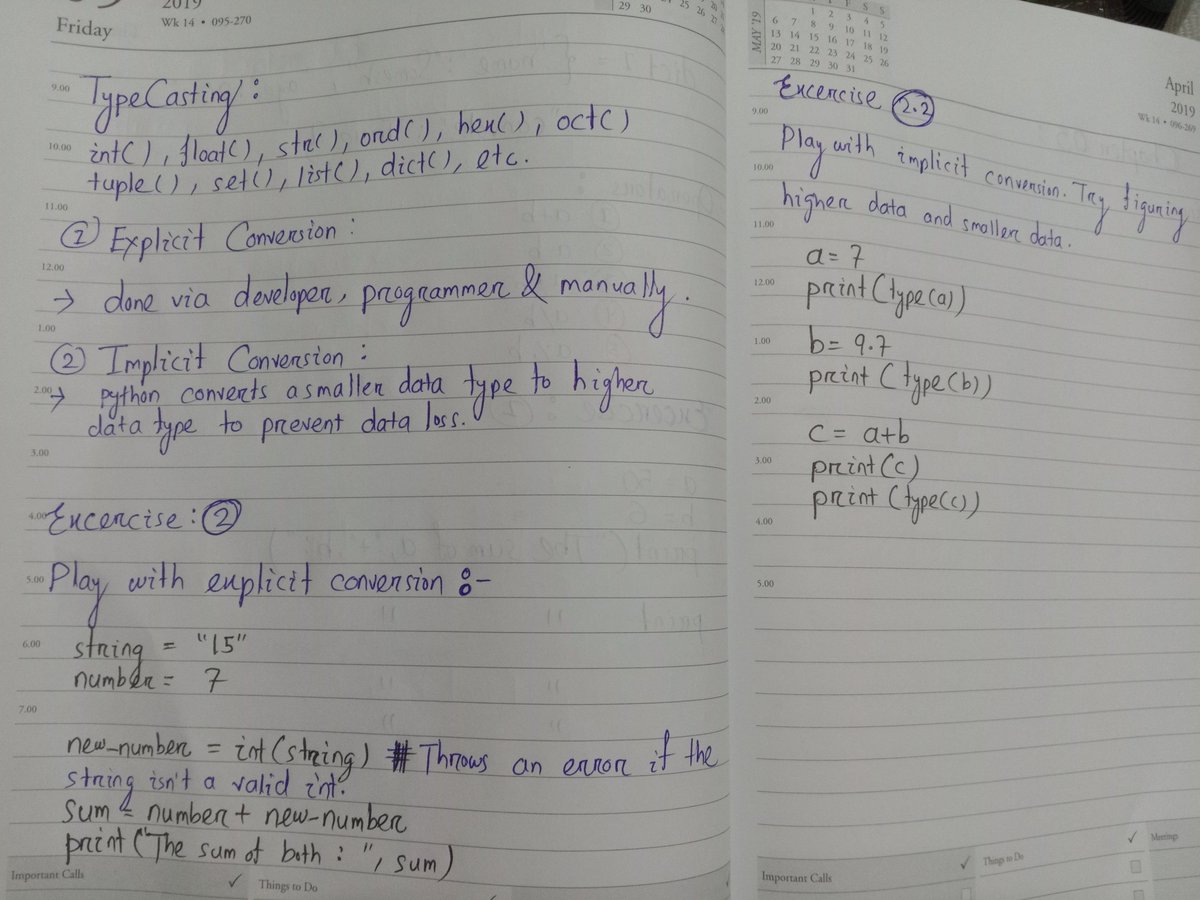 2019
Friday
Wk 14 • 095-270
29 30
9.00
TypeCasting:
10.00
int(), float(), str(), ord(), hex(), oct()
tuple(), set(), list(), dict(), etc.
11.00
① Explicit Conversion:
12.00
→ done via developer, programmer & manually.
1.00
② Implicit Conversion:
2.00
→ python converts a smaller data type to higher
data type to prevent data loss.
3.00
4.00
Excercise: ②
5.00
Play with explicit conversion :-
6.00
string = "15"
number = 7
7.00
new_number = int(string) # Throws an error if the
string isn't a valid int.
sum = number + new_number
print("The sum of both : ", sum)
Important Calls
✓
Things to Do
MAY '19
F S S
1 2 3 4 5
6 7 8 9 10 11 12
13 14 15 16 17 18 19
20 21 22 23 24 25 26
27 28 29 30 31
April
2019
Wk 14 • 096-269
Excercise 2.2
9.00
Play with implicit conversion. Try figuring
10.00
higher data and smaller data.
11.00
a = 7
12.00
print(type(a))
1.00
b = 9.7
print(type(b))
2.00
c = a+b
3.00
print(c)
print(type(c))
4.00
5.00
Important Calls
✓
Things to Do
✓
Meetings